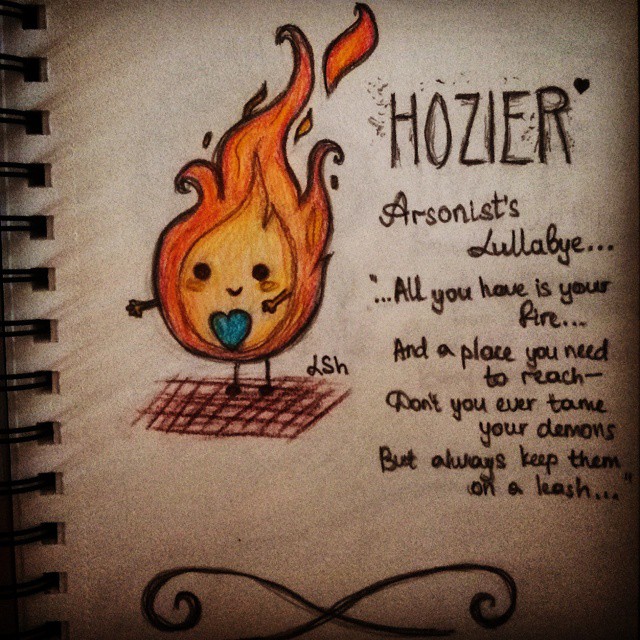 HOZIER
Arsonist's
Lullabye...
"...All you have is your
fire...
And a place you need
to reach—
Don't you ever tame
your demons
But always keep them
on a leash..."
LSh